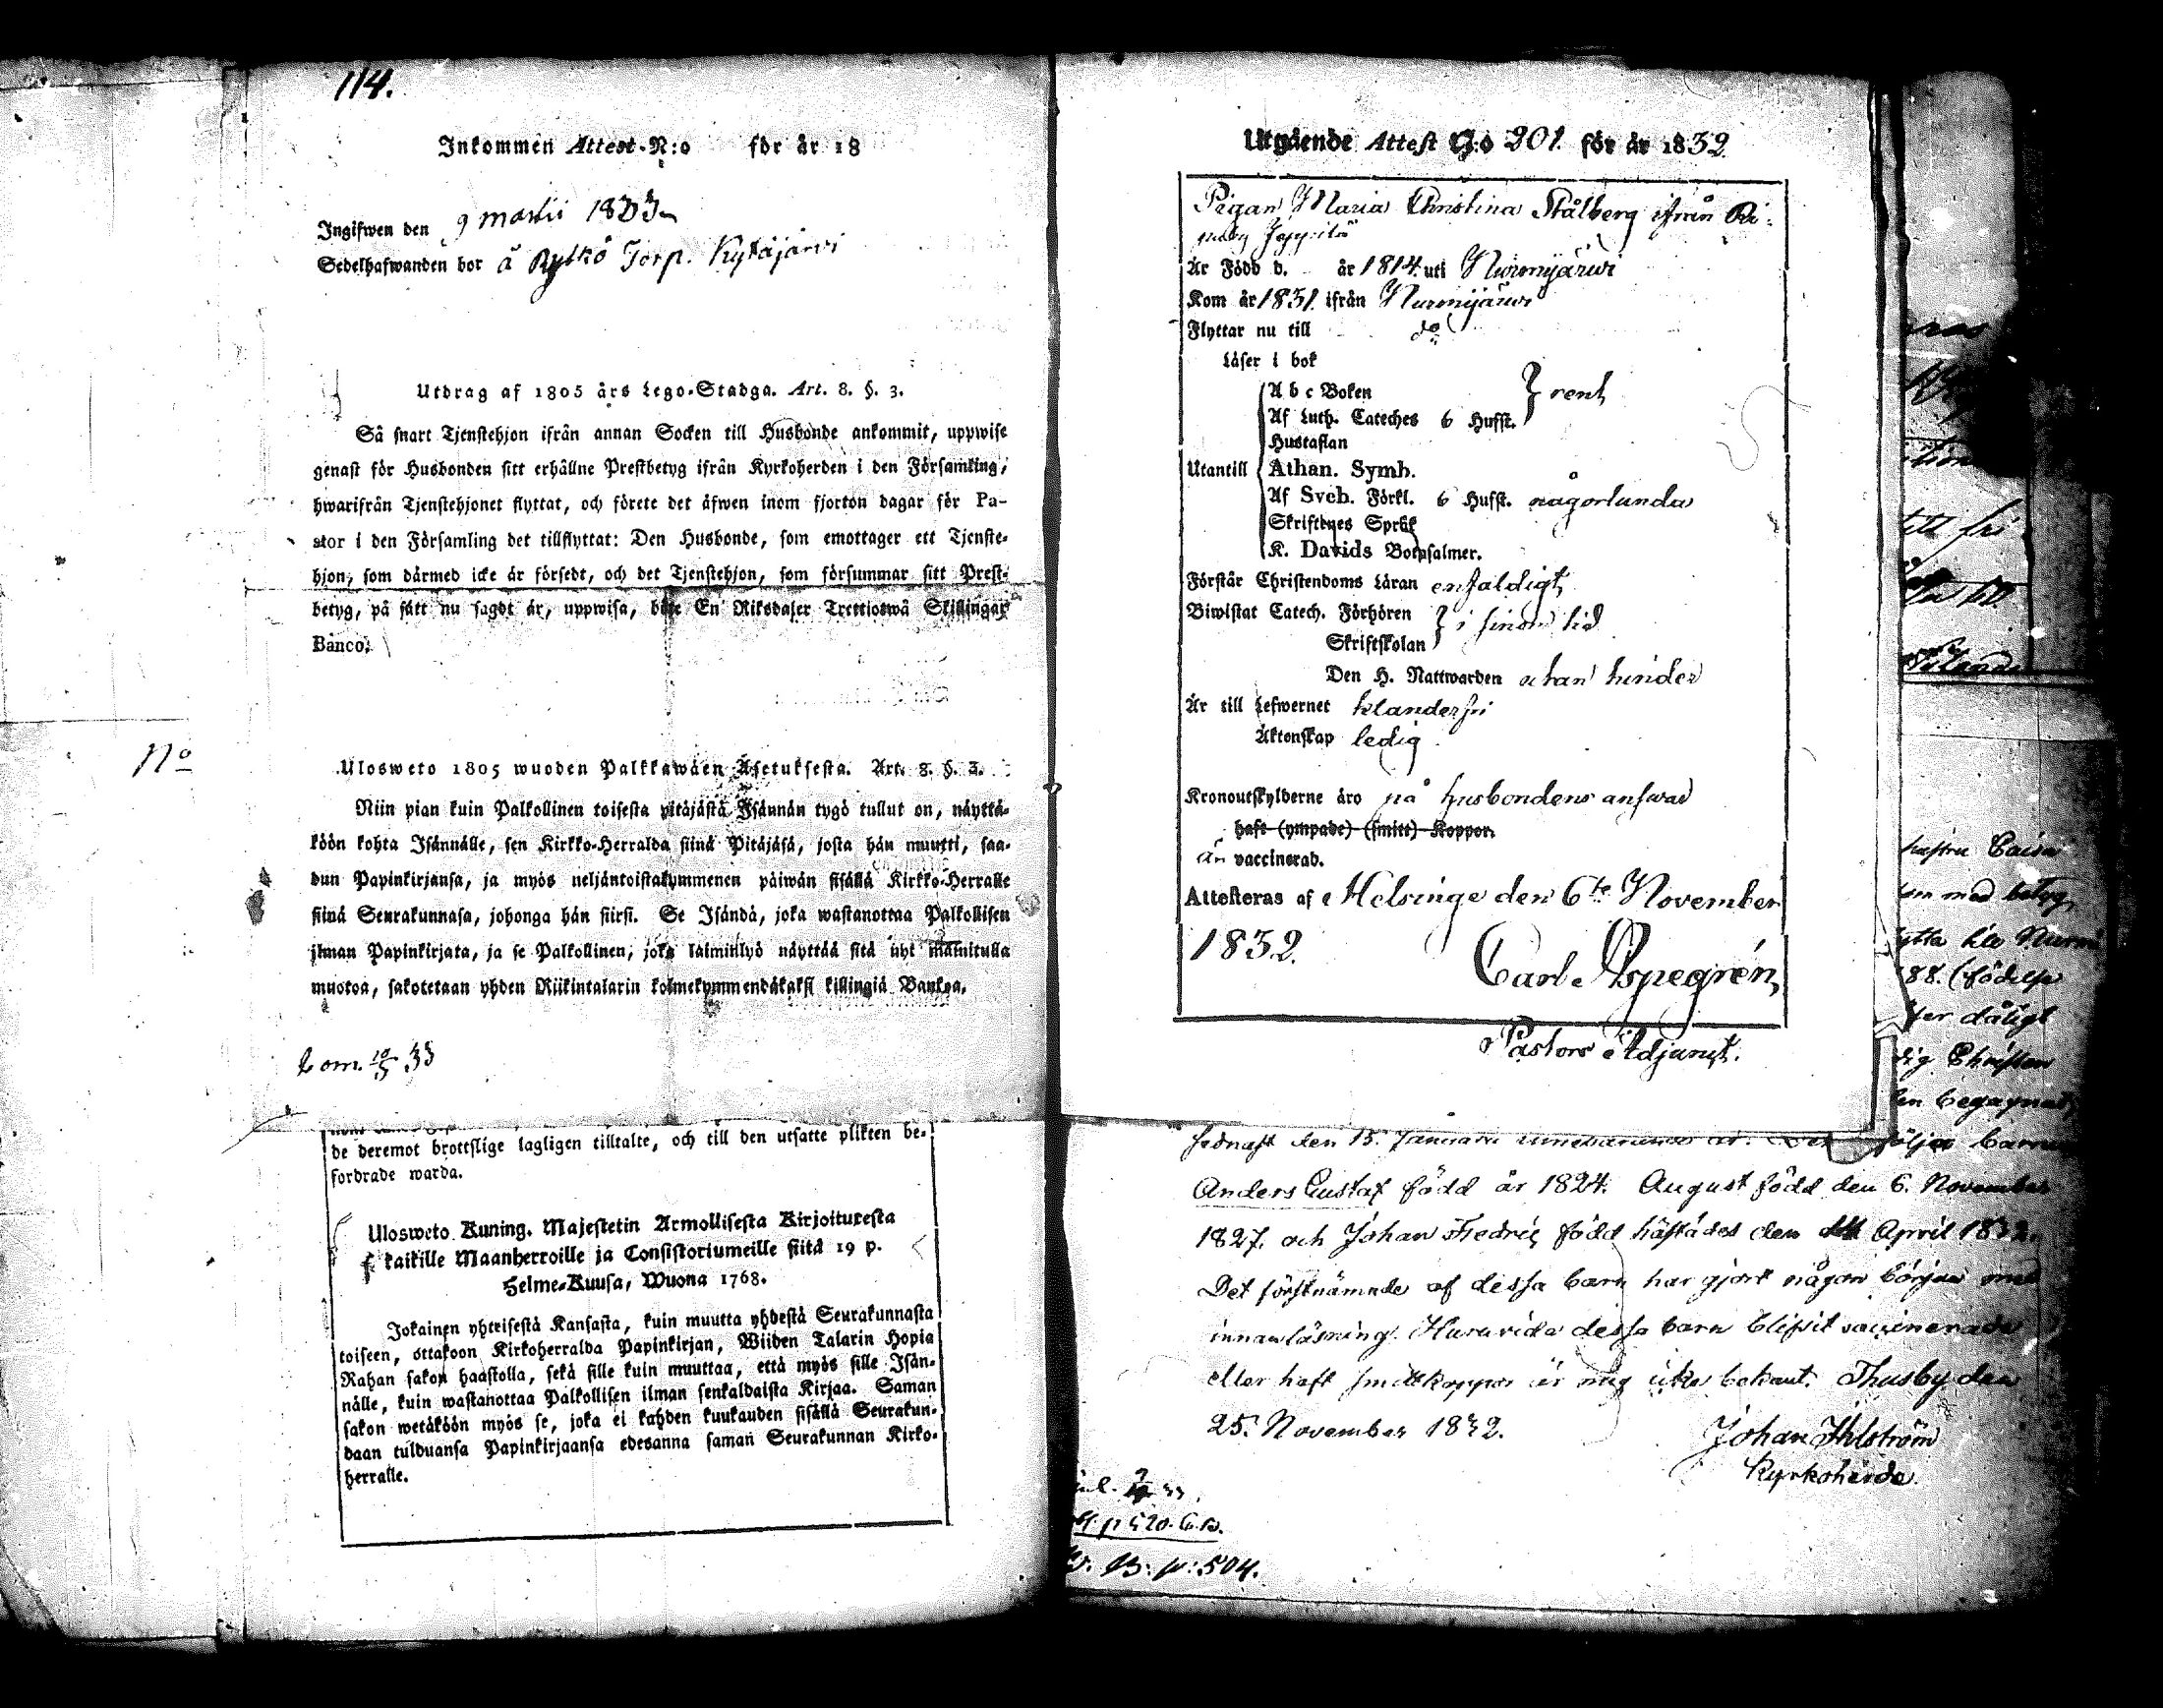 114.
Inkommen Attest-N:o för år 18
Ingifwen den 9 martii 1833
Sedelhafwanden bor å Rytkö Torp. Kytäjärvi
Utdrag af 1805 års Lego-Stadga. Art. 8. §. 3.
Så snart Tjenstehjon ifrån annan Socken till Husbonde ankommit, uppwise
genast för Husbonden sitt erhållne Prestbetyg ifrån Kyrkoherden i den Församling,
hwarifrån Tjenstehjonet flyttat, och förete det äfwen inom fjorton dagar för Pa-
stor i den Församling det tillflyttat: Den Husbonde, som emottager ett Tjenste-
hjon, som därmed icke är försedt, och det Tjenstehjon, som försummar sitt Prest-
betyg, på sätt nu sagdt är, uppwisa, böte En Riksdaler Trettiotwå Skillingar
Banco.
No
Ulosweto 1805 wuoden Palkkawäen Asetuksesta. Art. 8. §. 3.
Niin pian kuin Palkollinen toisesta pitäjästä Isännän tygö tullut on, näyttä-
köön kohta Isännälle, sen Kirkko-Herralda siinä Pitäjäsä, josta hän muutti, saa-
dun Papinkirjansa, ja myös neljäntoistakymmenen päiwän sisällä Kirkko-Herralle
siinä Seurakunnasa, johonga hän siirsi. Se Isändä, joka wastanottaa Palkollisen
ilman Papinkirjata, ja se Palkollinen, joka laiminlyö näyttää sitä nyt mainitulla
muotoa, sakotetaan yhden Riikintalarin kolmekymmendäkaksi killingiä Bankoa.
Com. 10/3 33
de deremot brottslige lagligen tilltalte, och till den utsatte plikten be-
fordrade warda.
Ulosweto Kuning. Majestetin Armollisesta Kirjoituxesta
kaikille Maanherroille ja Consistoriumeille siitä 19 p.
Helme-Kuusa, Wuona 1768.
Jokainen yhteisestä Kansasta, kuin muutta yhdestä Seurakunnasta
toiseen, ottakoon Kirkoherralda Papinkirjan, Wiiden Talarin Hopia
Rahan sakon haastolla, sekä sille kuin muuttaa, että myös sille Isän-
nälle, kuin wastanottaa Palkollisen ilman senkaldaista Kirjaa. Saman
sakon wetäköön myös se, joka ei kahden kuukauden sisällä Seurakun-
daan tulduansa Papinkirjaansa edesanna saman Seurakunnan Kirko-
herralle.
Utgående Attest N:o 201. för år 1832
Pigan Maria Christina Stålberg ifrån Ri-
Är Född d. år 1814. uti Nurmijärwi
Kom år 1831. ifrån Nurmijärwi
Flyttar nu till do
Läser i bok
A b c Boken } rent
Af Luth. Cateches 6 Hufst.
Hustaflan
Utantill Athan. Symb.
Af Sveb. Förkl. 6 Hufst. någorlunda
Skriftenes Språk
K. Davids Botpsalmer.
Förstår Christendoms Läran enfaldigt
Biwistat Catech. Förhören } i sinom tid
Skriftskolan
Den H. Nattwarden utan hinder
Är till Lefwernet klanderfri
Äktenskap ledig
Kronoutskylderne äro på husbondens answar
haft (ympade) (smitt) Koppor.
är vaccinerad.
Attesteras af Helsinge den 6te November
1832. Carl Aspegrén,
Pastors Adjunct.
sednast den 15. Januarii följer barnen
Anders Gustaf född år 1824. August född den 6. November
1827. och Johan Fredric född härstädes den April 1832.
Det förstnämnde af dessa barn har gjort någon början med
innanläsning. Huruvida dessa barn blifvit vaccinerade
eller haft smittkoppor är mig icke bekant. Thusby den
25. November 1832.
Johan Ahlström
Kyrkoherde.
p 520. C.B.
B: p: 504.